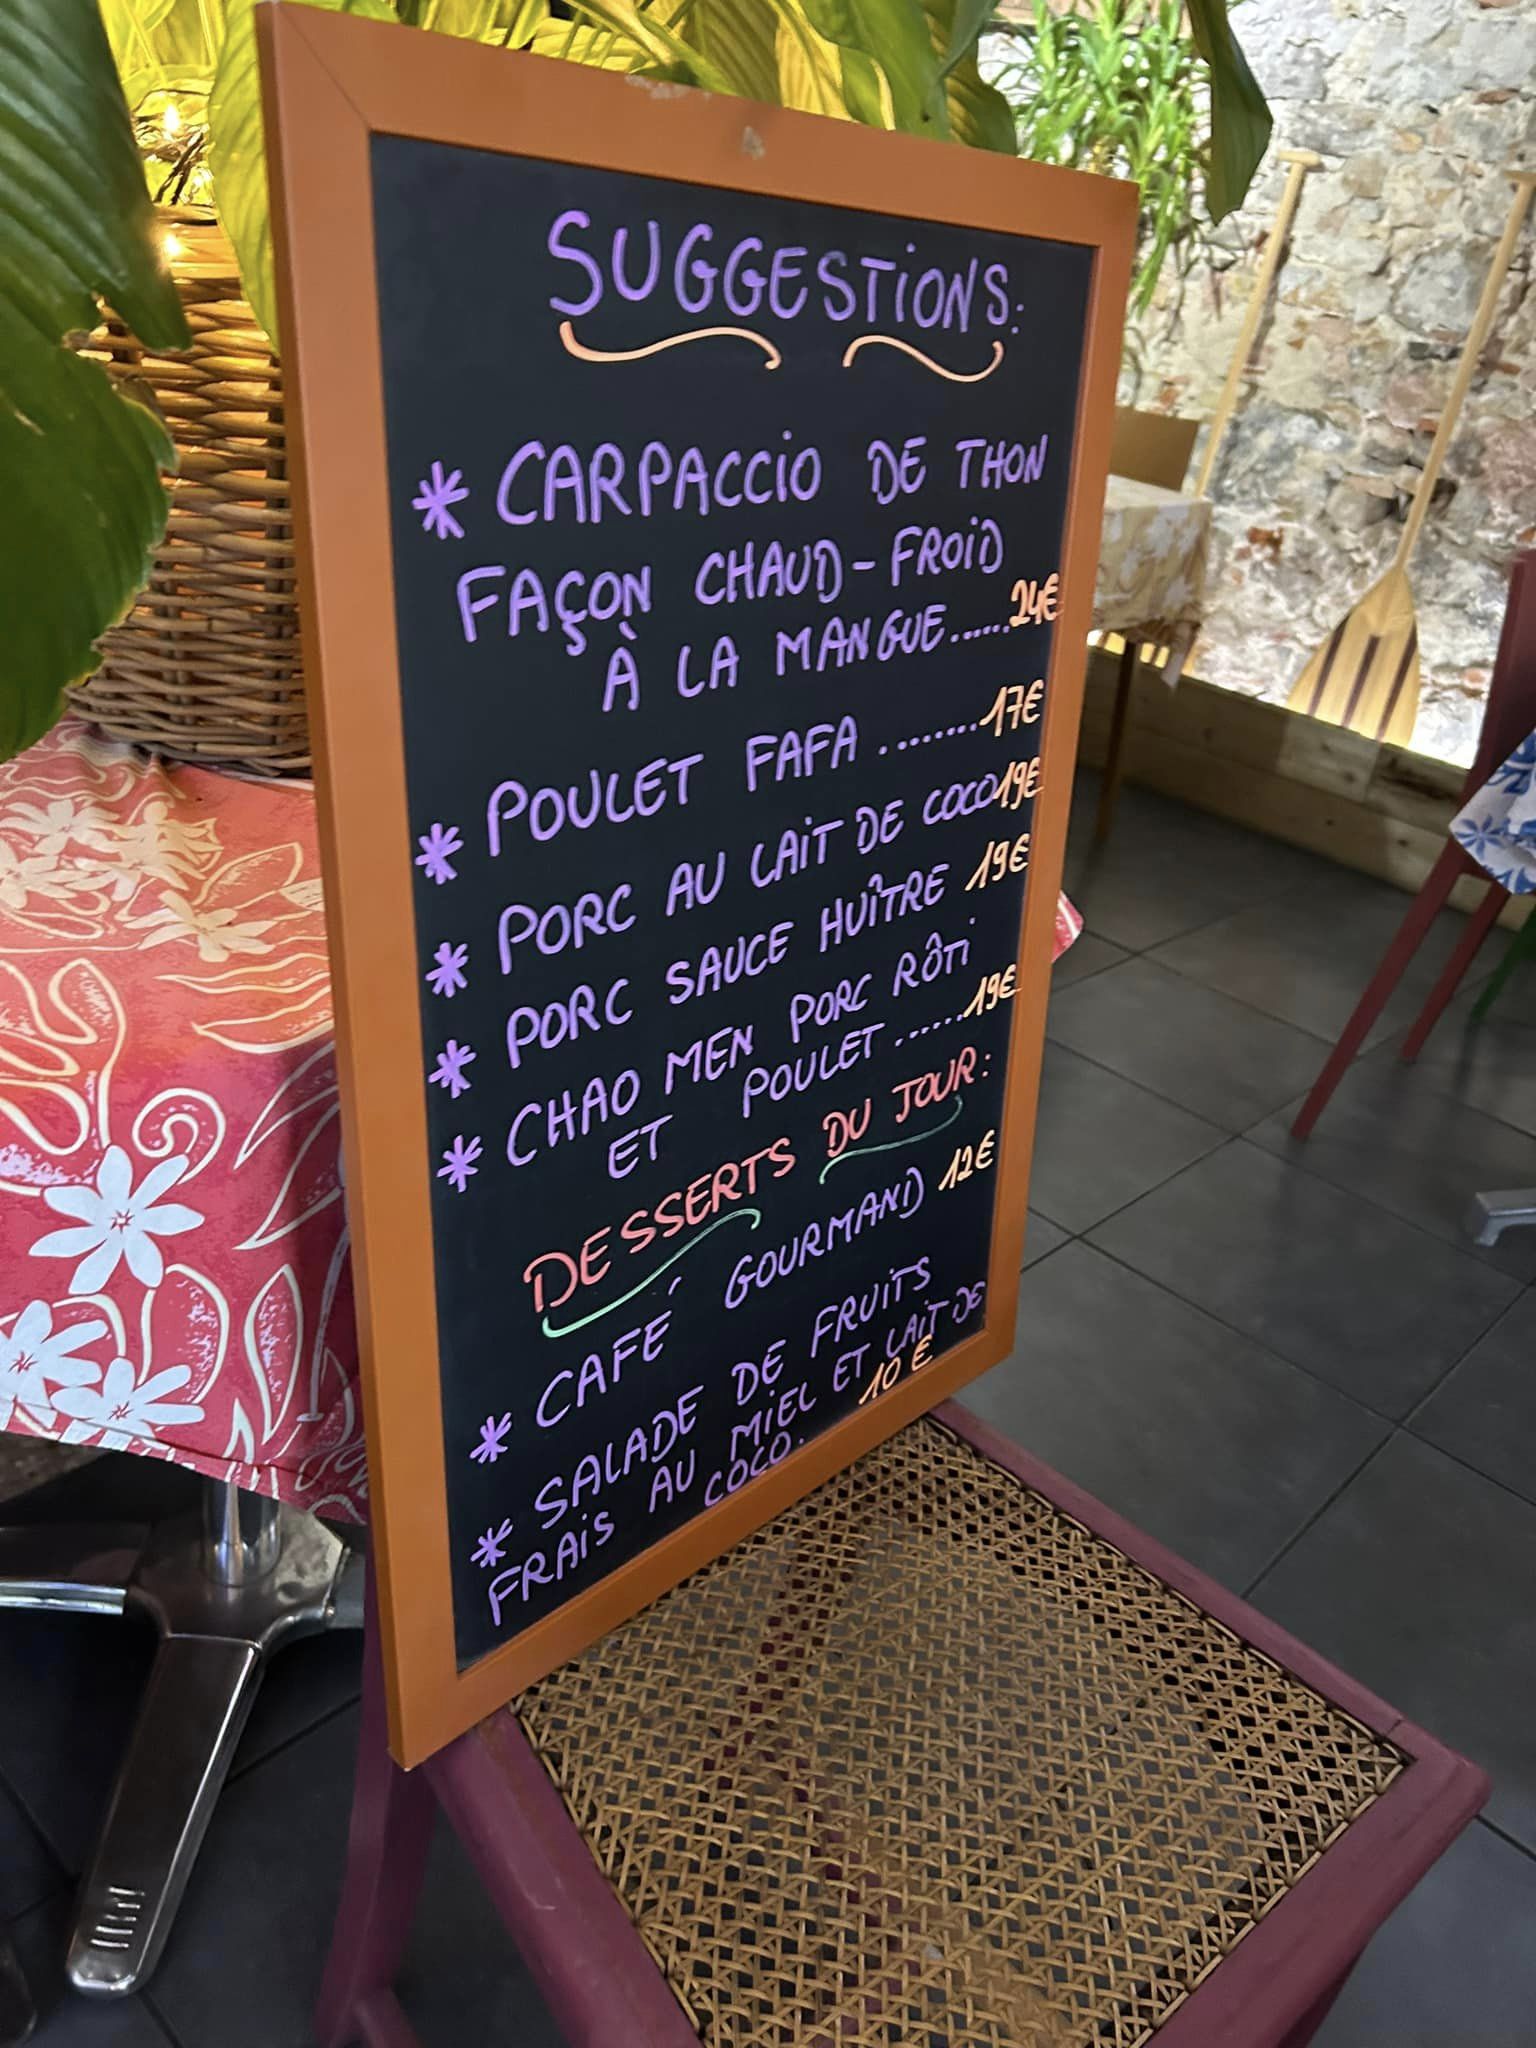 SUGGESTIONS:
* CARPACCIO DE THON
FAÇON CHAUD-FROID
À LA MANGUE......24€
* POULET FAFA ........17€
* PORC AU LAIT DE COCO 19€
* PORC SAUCE HUÎTRE 19€
* CHAO MEN PORC RÔTI
ET POULET ......19€
DESSERTS DU JOUR:
* CAFÉ GOURMAND 12€
* SALADE DE FRUITS
FRAIS AU MIEL ET LAIT DE
COCO. 10€